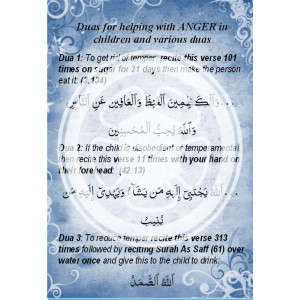 Duas for helping with ANGER in
children and various duas
Dua 1: To get rid of temper, recite this verse 101
times on sugar for 21 days then make the person
eat it: (3:134)
...وَالْكَاظِمِينَ الْغَيْظَ وَالْعَافِينَ عَنِ النَّاسِ
وَاللَّهُ يُحِبُّ الْمُحْسِنِينَ
Dua 2: If the child is disobedient or temperamental,
then recite this verse 11 times with your hand on
their forehead: (42:13)
...اللَّهُ يَجْتَبِي إِلَيْهِ مَن يَشَاءُ وَيَهْدِي إِلَيْهِ مَن
يُنِيبُ
Dua 3: To reduce temper recite this verse 313
times followed by reciting Surah As Saff (61) over
water once and give this to the child to drink:
اللَّهُ الصَّمَدُ